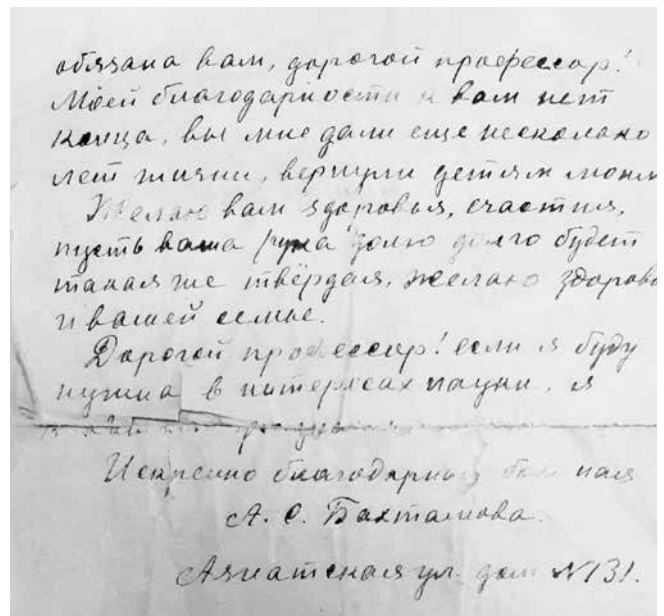 обязана вам, дорогой профессор!
Моей благодарности к вам нет
конца, вы мне дали еще несколько
лет жизни, вернули детям моим
Желаю вам здоровья, счастия,
пусть ваша рука долго долго будет
такая же твёрдая, желаю здоровь
и вашей семье.
Дорогой профессор! если я буду
нужна в интересах науки, я
Искренно благодарный больная
А. С.
Азиатская ул. дом №131.